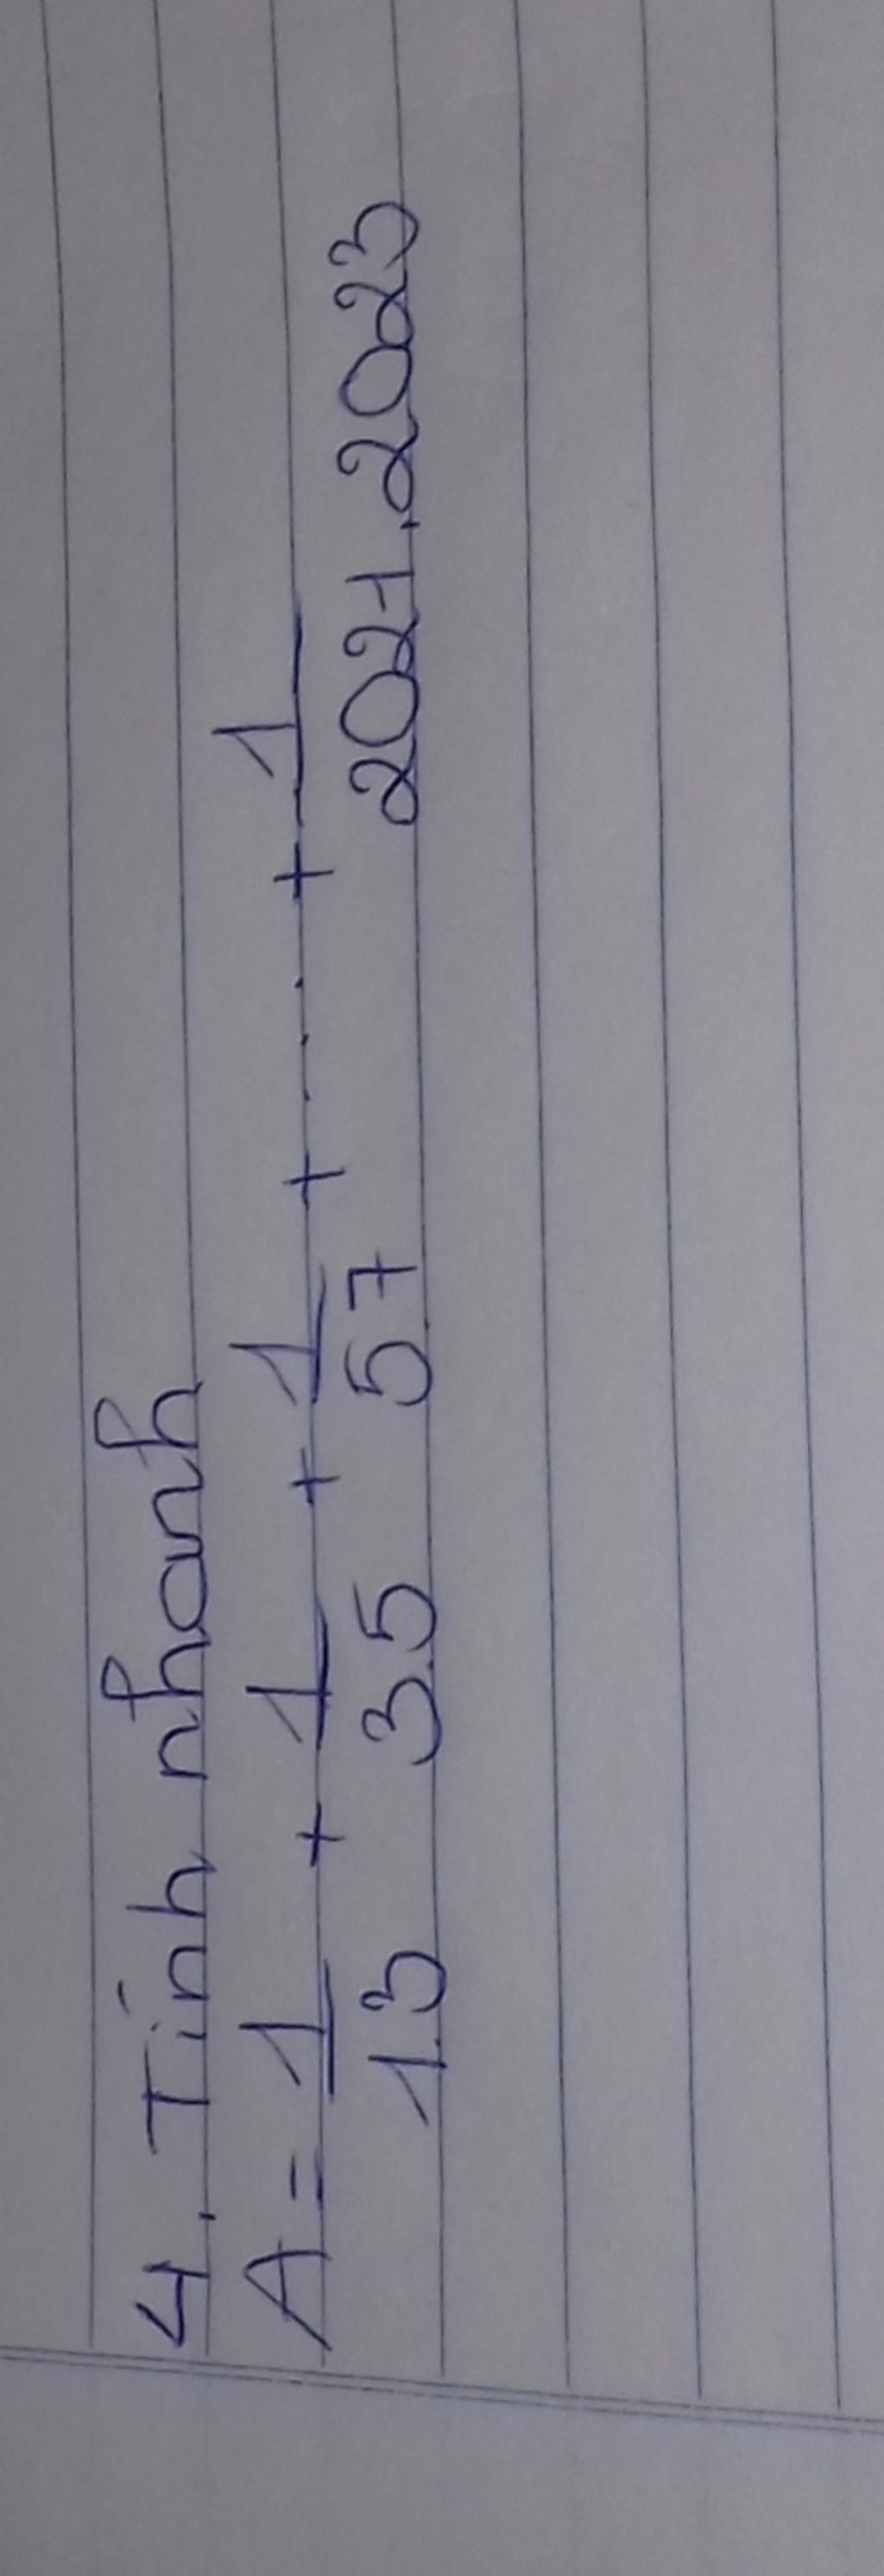 4. Tính nhanh
A = 1/1.3 + 1/3.5 + 1/5 7 + .... + 1/2021.2023